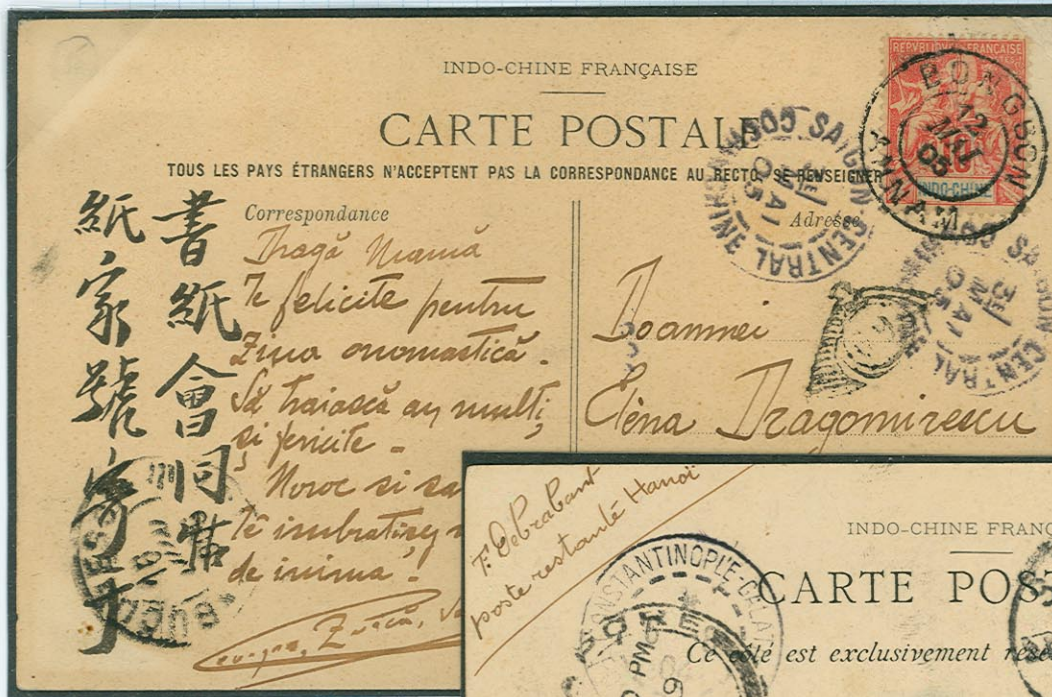 INDO-CHINE FRANÇAISE
CARTE POSTALE
TOUS LES PAYS ÉTRANGERS N'ACCEPTENT PAS LA CORRESPONDANCE AU RECTO, SE RENSEIGNER
REPUBLIQUE FRANÇAISE
10
INDO-CHINE
BONGSON
12
MAI
05
ANNAM
SAIGON-CENTRAL
COCHINCHINE
MAI
05
SAIGON-CENTRAL
MAI
05
Correspondance
Dragă Mamă
Te felicite pentru
Ziua onomastică.
Să traiască ani mulți
și fericite.
Noroc si sa
Te
de inima.
Adresse
Doamnei
Elena Dragomirescu
書紙會同
紙家號寄
F. Debrabant
poste restante Hanoï
INDO-CHINE FRANÇ
CARTE POST
Ce côté est exclusivement rése
CONSTANTINOPLE-GALATA
PM